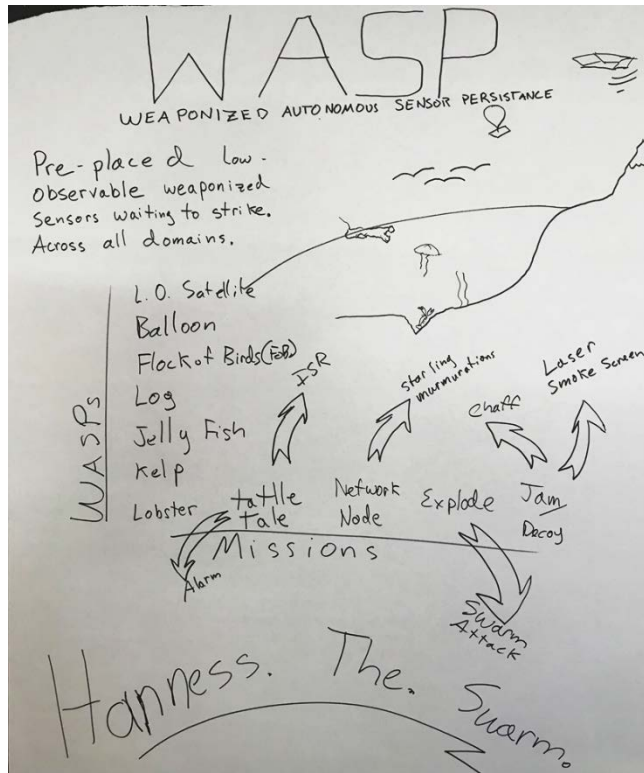 WASP
WEAPONIZED AUTONOMOUS SENSOR PERSISTANCE
Pre-placed low-
observable weaponized
Sensors waiting to strike.
Across all domains.
WASPs
L.O. Satellite
Balloon
Flock of Birds (FoB)
Log
Jelly Fish
Kelp
Lobster
ISR
starling
murmurations
chaff
Laser
Smoke Screen
tattle
tale
Network
Node
Explode
Jam
Decoy
Missions
Alarm
Swarm
Attack
Harness. The. Swarm.